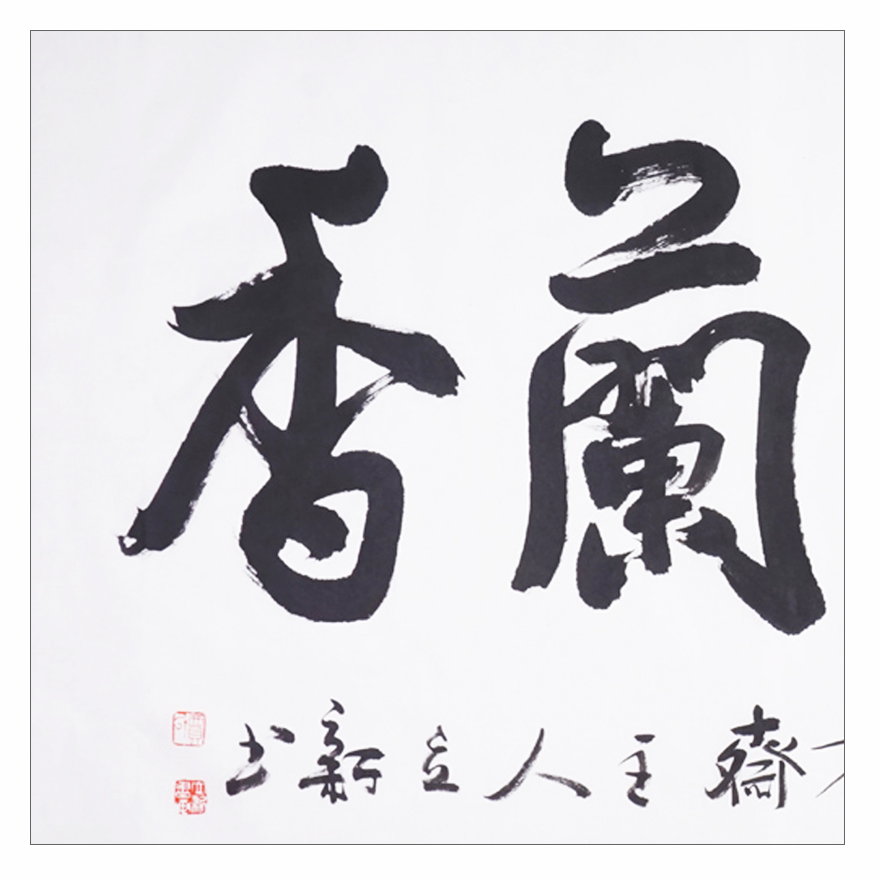 蘭香
齋主人立新书